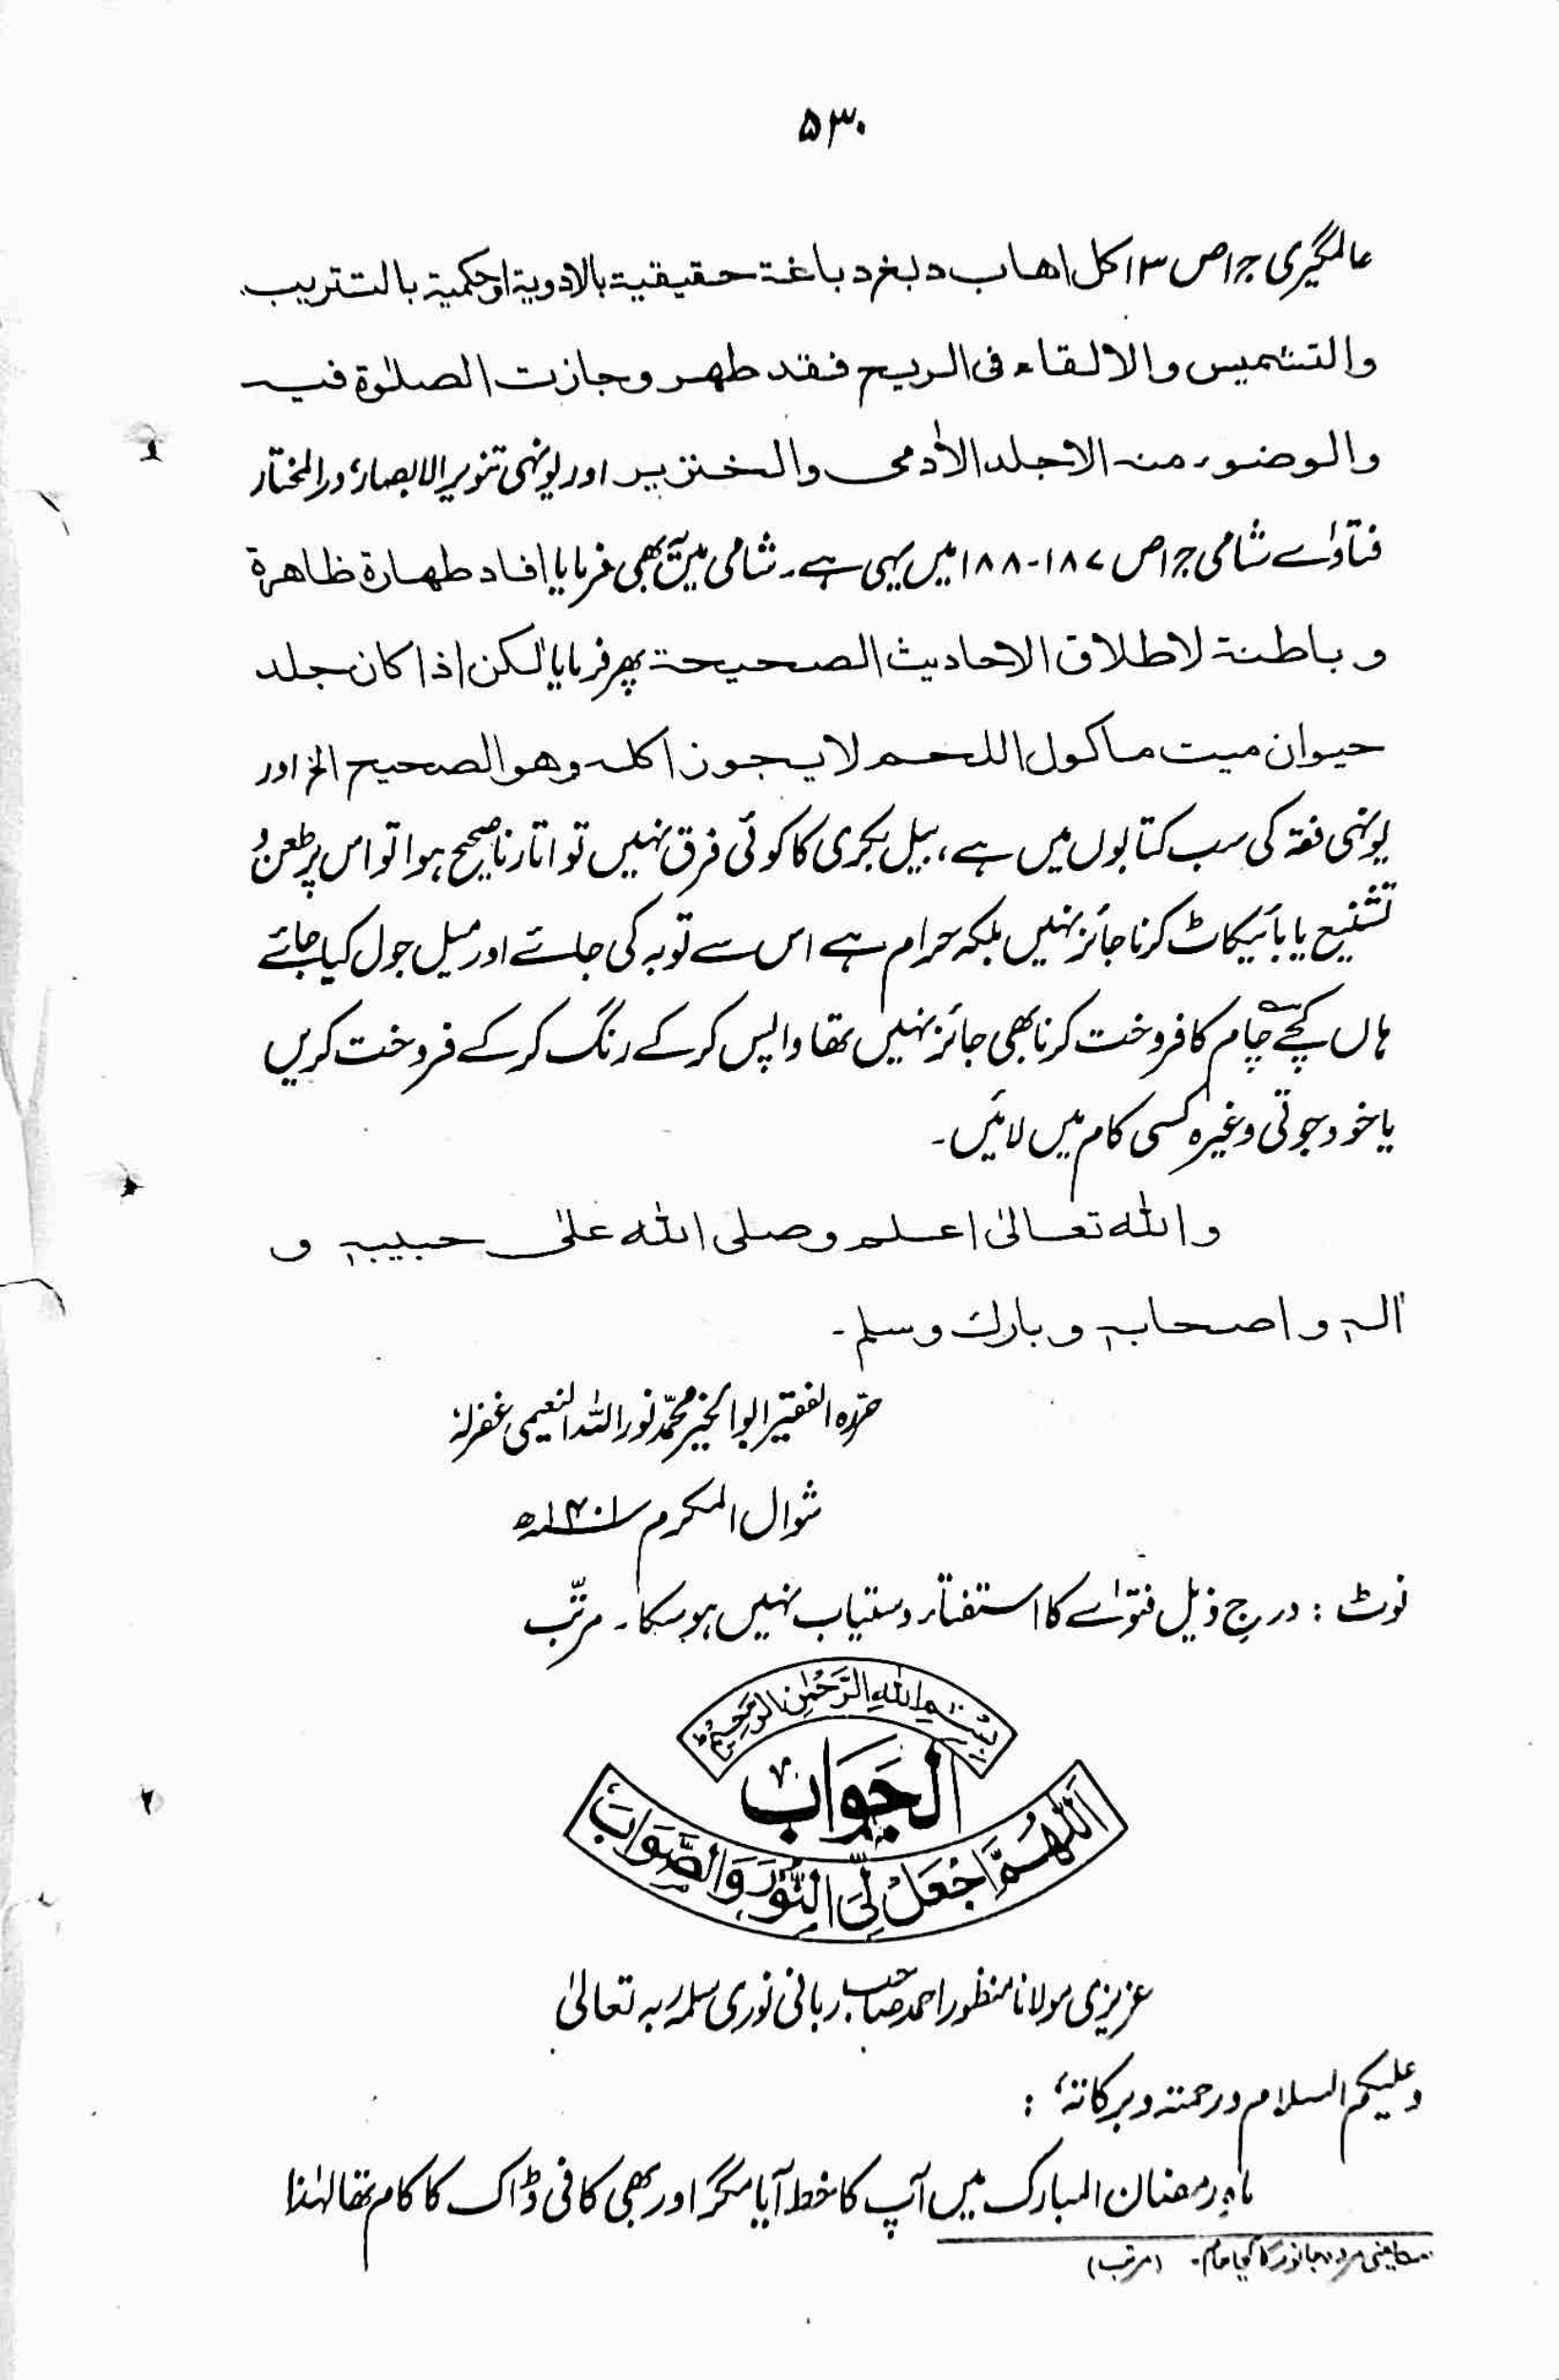 ۵۳۰
عالمگیری ج۱ ص ۱۳ کل اھاب دبغ دباغۃ حقیقیۃ بالادویۃ او حکمیۃ بالتتریب
والتشمیس والالقاء فی الریح فقد طھر وجازت الصلوٰۃ فیہ
والوضوء منہ الا جلد الاٰدمی والخنزیر اور یونہی تنویر الابصار، درالمختار
فتاوٰے شامی ج۱ ص ۱۸۷-۱۸۸ میں یہی ہے۔ شامی میں یہ بھی فرمایا افاد طھارۃ ظاھرۃ
و باطنۃ لاطلاق الاحادیث الصحیحۃ پھر فرمایا لکن اذا کان جلد
حیوان میت ماکول اللحم لا یجوز اکلہ وھو الصحیح الخ اور
یونہی فقہ کی سب کتابوں میں ہے، بیل بکری کا کوئی فرق نہیں تو اتارنا صحیح ہوا تو اس پر طعن و
تشنیع یا بائیکاٹ کرنا جائز نہیں بلکہ حرام ہے اس سے توبہ کی جائے اور میل جول کیا جائے
ہاں کچے چام کا فروخت کرنا بھی جائز نہیں تھا واپس کر کے رنگ کر کے فروخت کریں
یا خود جوتی وغیرہ کسی کام میں لائیں۔
واللہ تعالیٰ اعلم وصلی اللہ علیٰ حبیبہٖ و
اٰلہٖ و اصحابہٖ و بارک وسلم۔
حررہ الفقیر ابو الخیر محمّد نور اللہ النعیمی غفرلہٗ
شوال المکرم ۱۴۰۱ھ
نوٹ : درج ذیل فتوٰے کا استفتاء دستیاب نہیں ہو سکا۔ مرتّب
بِسْمِ اللهِ الرَّحْمٰنِ الرَّحِیْمِ
الجَوَابُ
اَللّٰهُمَّ اجْعَلْ لِّیَ النُّوْرَ وَالصَّوَابَ
عزیزی مولانا منظور احمد صاحب ربانی نوری سلمہ ربہ تعالیٰ
وعلیکم السلام ورحمتہ وبرکاتہٗ :
ماہِ رمضان المبارک میں آپ کا خط آیا مگر اور بھی کافی ڈاک کا کام تھا لہٰذا
یعنی مردہ جانور کا کچا چام۔ (مرتب)